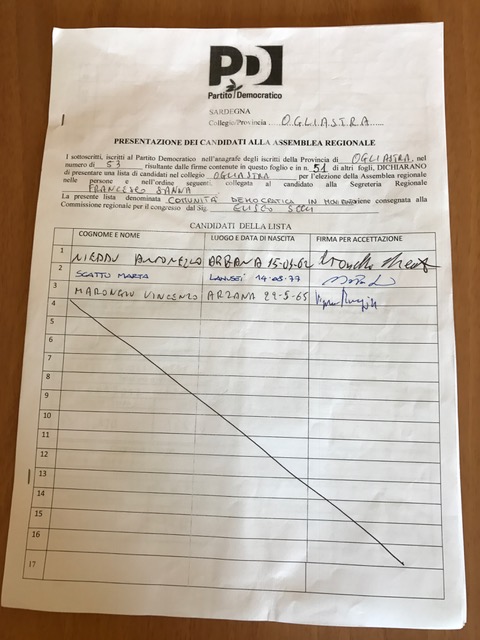 PD
Partito Democratico
SARDEGNA
Collegio/Provincia ....OGLIASTRA......
PRESENTAZIONE DEI CANDIDATI ALLA ASSEMBLEA REGIONALE
I sottoscritti, iscritti al Partito Democratico nell'anagrafe degli iscritti della Provincia di OGLIASTRA, nel
numero di 53 risultante dalle firme contenute in questo foglio e in n. 51 di altri fogli, DICHIARANO
di presentare una lista di candidati nel collegio OGLIASTRA per l'elezione della Assemblea Regionale
nelle persone e nell'ordine seguenti, collegata al candidato alla Segreteria Regionale
FRANCESCO SANNA
La presente lista denominata COMUNITÀ DEMOCRATICA IN viene consegnata alla
Commissione regionale per il congresso dal Sig.
CANDIDATI DELLA LISTA
COGNOME E NOME LUOGO E DATA DI NASCITA FIRMA PER ACCETTAZIONE
1 NIEDDU ANTONELLO ARZANA 15-04-62
2 SCATTU MARTA LANUSEI 14-08-77
3 MARONGIU VINCENZO ARZANA 22-5-65
4
5
6
7
8
9
10
11
12
13
14
15
16
17